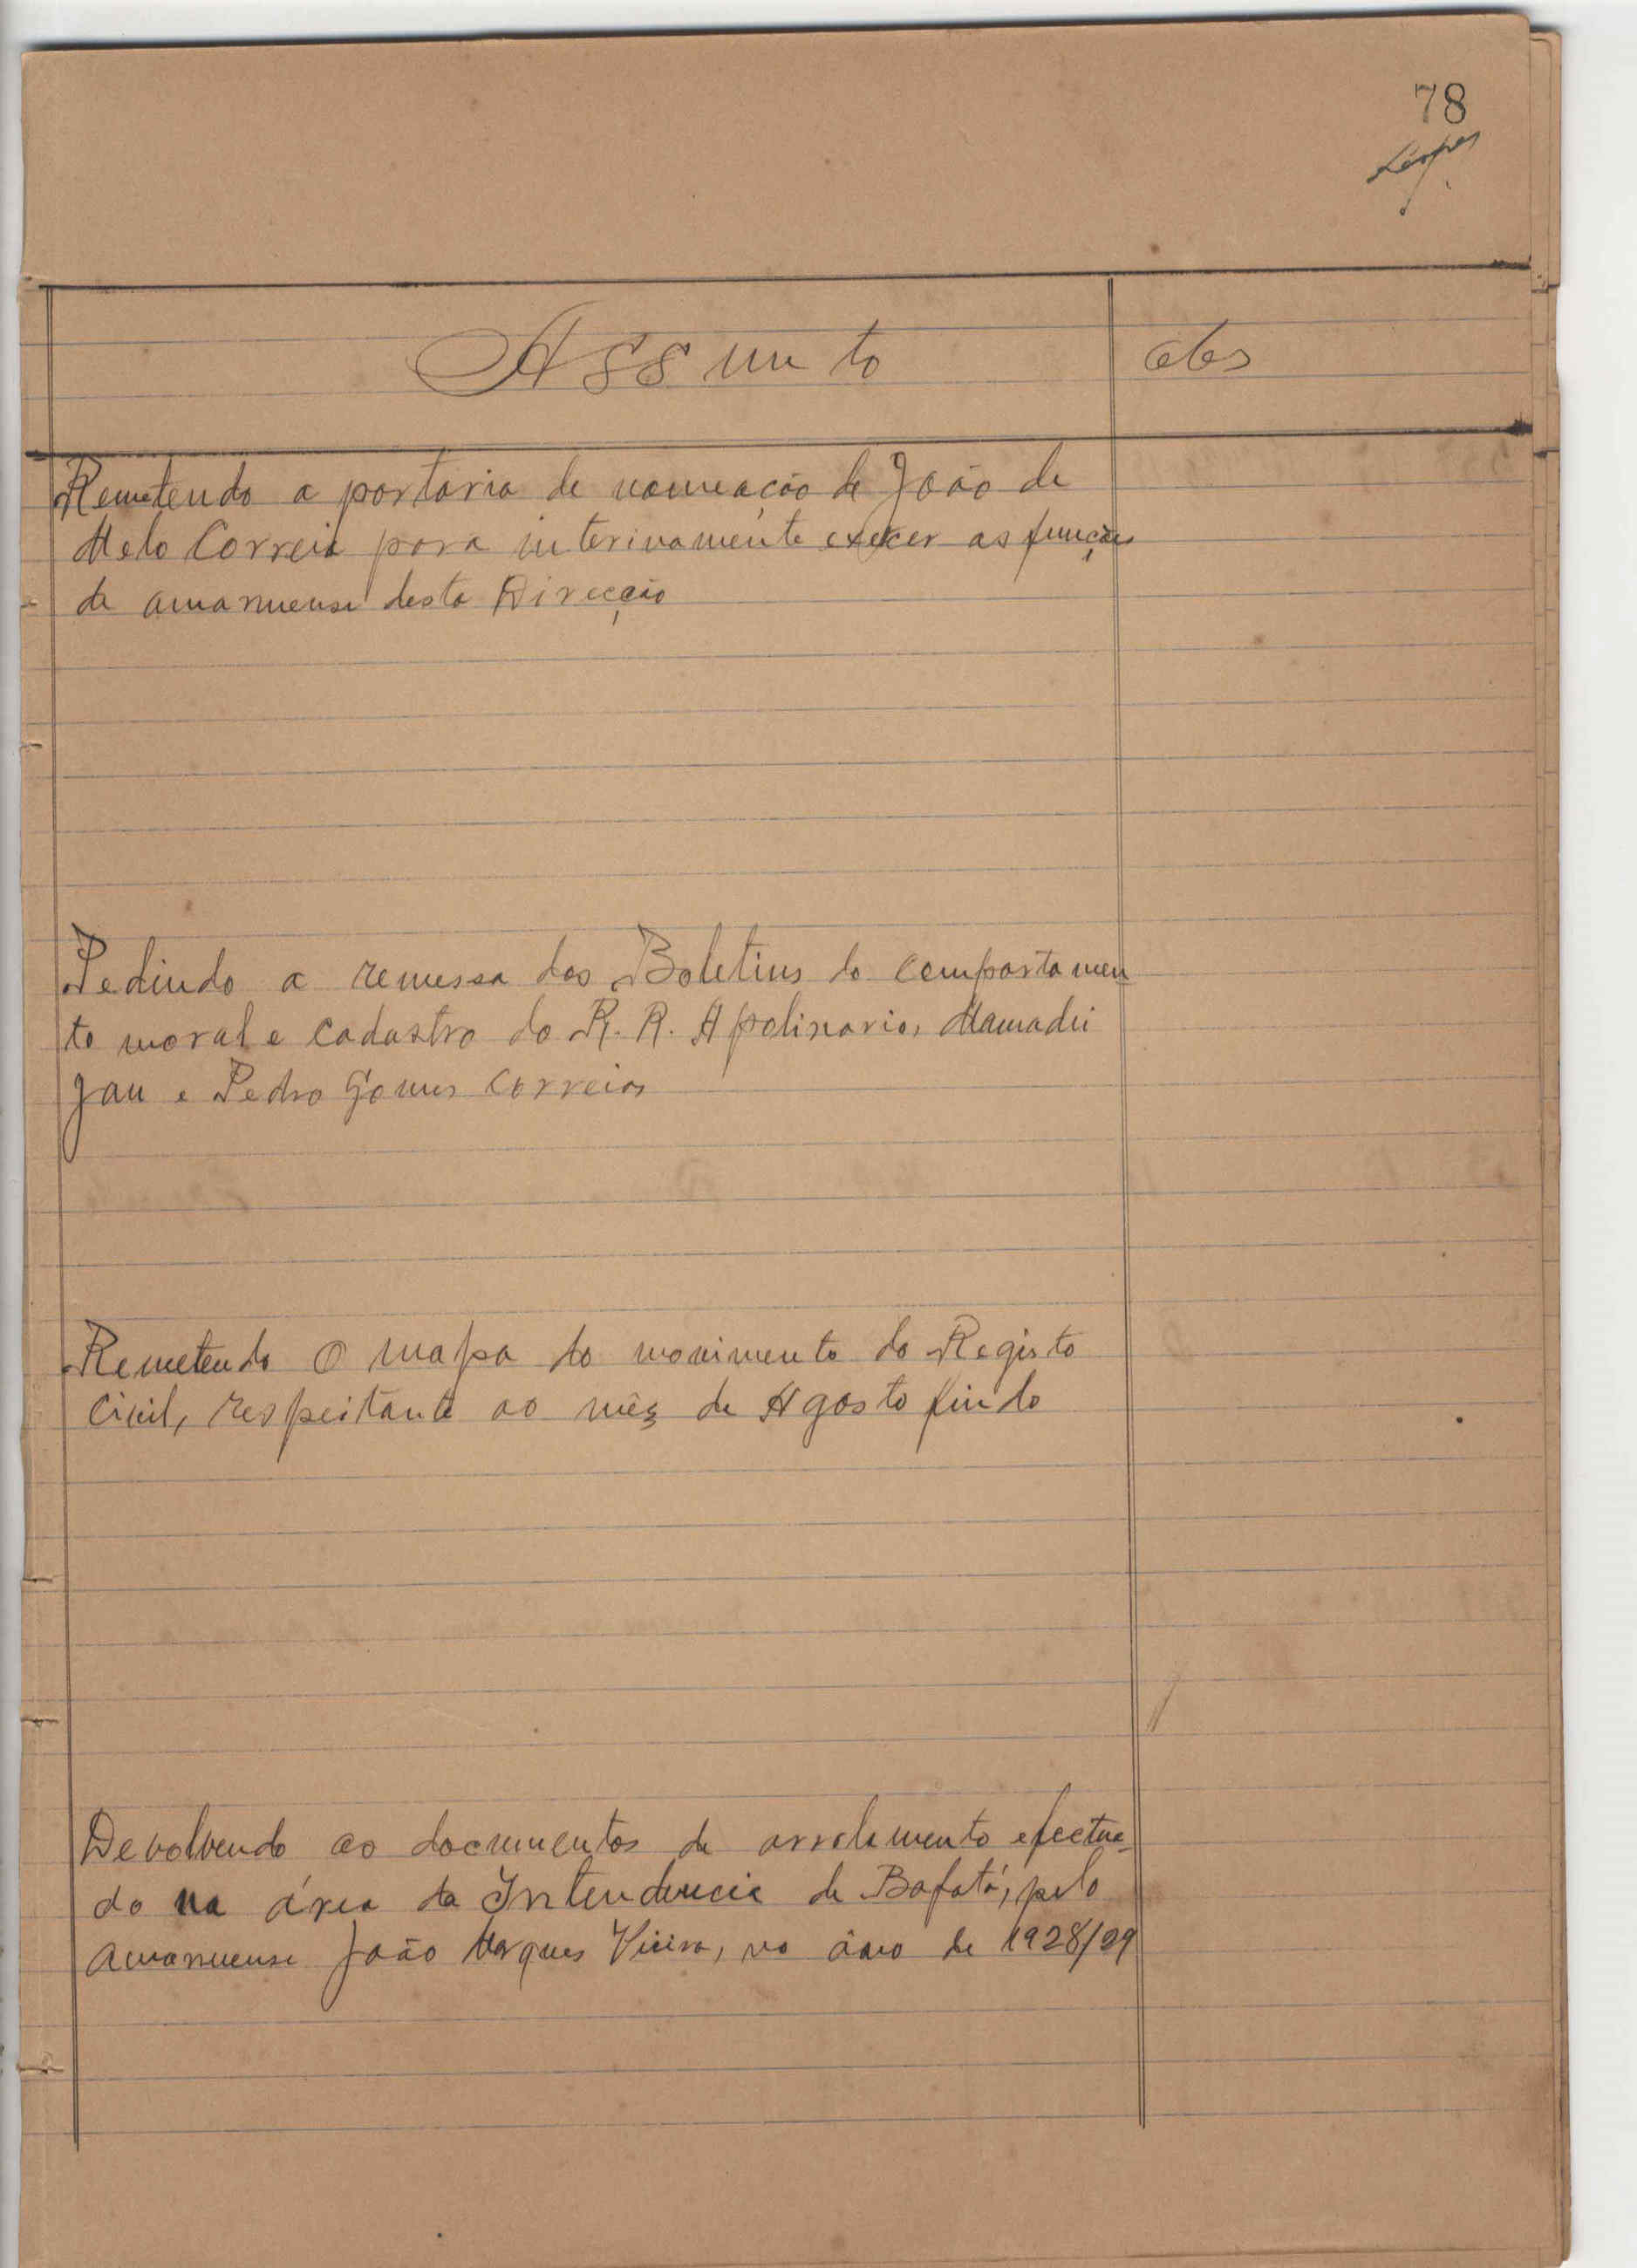 78
Lopes
Assunto
Obs
Remetendo a portaria de nomeação de João de
Melo Correia para interinamente exercer as funções
de amanuense desta Direcção
Pedindo a remessa dos Boletins do comportamen
to moral e cadastro do R. R. Apolinario, Mamadú
Jau e Pedro Gomes Correia
Remetendo o mapa do movimento do Registo
Civil, respeitante ao mês de Agosto findo
Devolvendo os documentos de arrolamento efectua-
do na área da Intendencia de Bafatá, pelo
amanuense João Marques Vieira, no âno de 1928/29